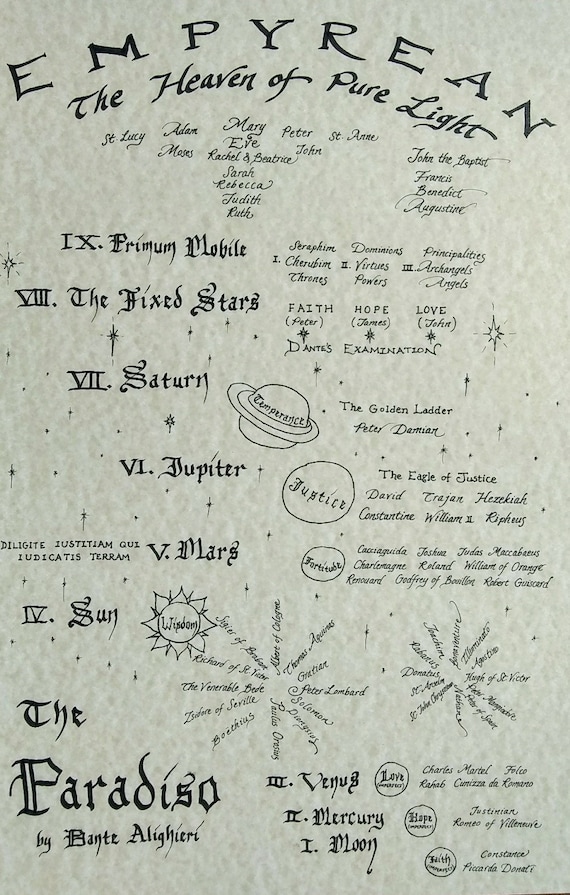 EMPYREAN
The Heaven of Pure Light
St. Lucy Adam Mary Peter St. Anne
Eve
Moses Rachel & Beatrice John
Sarah
Rebecca
Judith
Ruth
John the Baptist
Francis
Benedict
Augustine
IX. Primum Mobile
Seraphim Dominions Principalities
I. Cherubim II. Virtues III. Archangels
Thrones Powers Angels
VIII. The Fixed Stars
FAITH HOPE LOVE
(Peter) (James) (John)
DANTE'S EXAMINATION
VII. Saturn
Temperance
The Golden Ladder
Peter Damian
VI. Jupiter
Justice
The Eagle of Justice
David Trajan Hezekiah
Constantine William II Ripheus
DILIGITE IUSTITIAM QUI
IUDICATIS TERRAM
V. Mars
Fortitude
Cacciaguida Joshua Judas Maccabaeus
Charlemagne Roland William of Orange
Renouard Godfrey of Bouillon Robert Guiscard
IV. Sun
Wisdom
Siger of Brabant
Albert of Cologne
Thomas Aquinas
Richard of St. Victor
Gratian
The Venerable Bede
Peter Lombard
Isidore of Seville
Solomon
Boethius
Dionysius
Paulus Orosius
Joachim
Bonaventure
Illuminato
Rabanus
Agostino
Donatus
Hugh of St. Victor
St. Anselm
Peter Mangiadore
St. John Chrysostom
Peter of Spain
Nathan
The
Paradiso
by Dante Alighieri
III. Venus
Love
(IMPERFECT)
Charles Martel Folco
Rahab Cunizza da Romano
II. Mercury
Hope
(IMPERFECT)
Justinian
Romeo of Villeneuve
I. Moon
Faith
(IMPERFECT)
Constance
Piccarda Donati